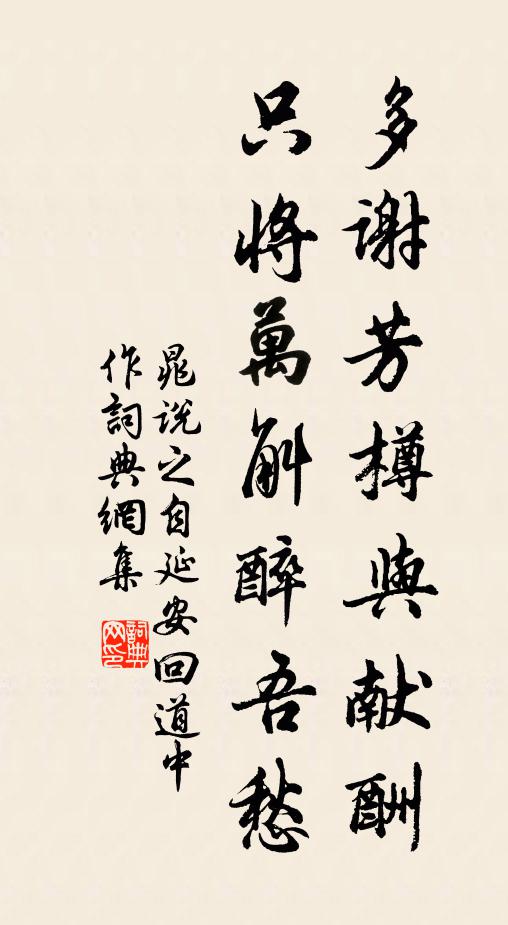 多谢芳樽與献酬
只将萬斛醉吾愁
晁说之自延安回道中
作詞典網集
詞典网印